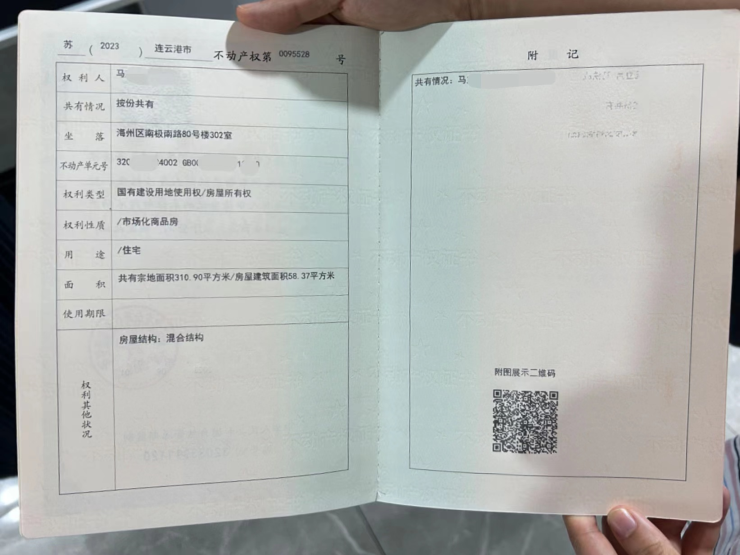 苏 ( 2023 ) 连云港市 不动产权第 0095528 号
权利人 马
共有情况 按份共有
坐落 海州区南极南路80号楼302室
不动产单元号 320 4002 GB0
权利类型 国有建设用地使用权/房屋所有权
权利性质 /市场化商品房
用途 /住宅
面积 共有宗地面积310.90平方米/房屋建筑面积58.37平方米
使用期限
权利其他状况 房屋结构：混合结构
附 记
共有情况：马
附图展示二维码